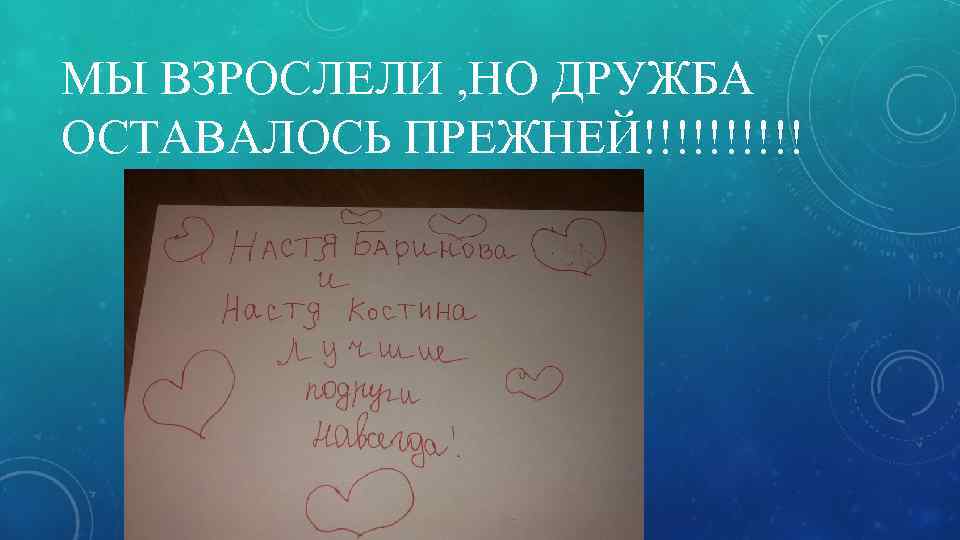 МЫ ВЗРОСЛЕЛИ ,НО ДРУЖБА
ОСТАВАЛОСЬ ПРЕЖНЕЙ!!!!!!!!!!
НАСТЯ БАРИНОВА
и
Настя Костина
Лучшие
подруги
навсегда!